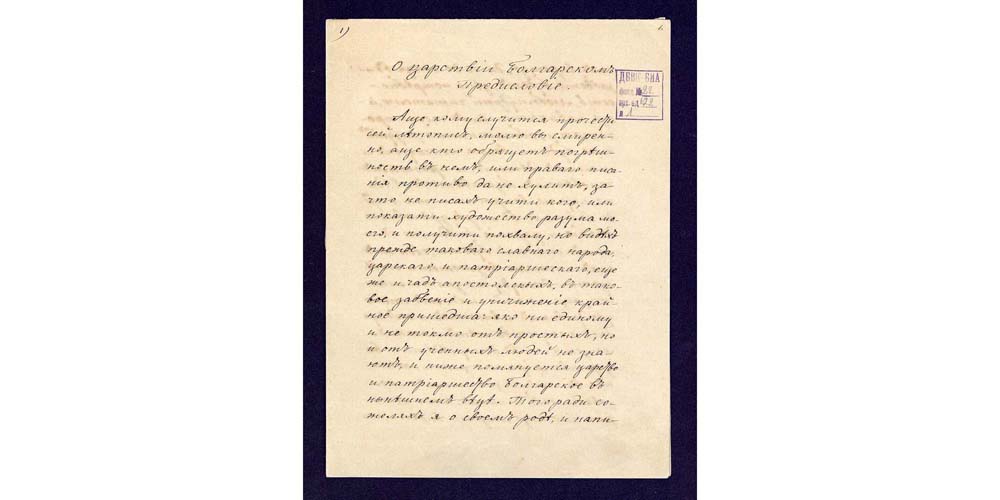 1)
1.
О царствіи Болгарскомъ
Предисловіе.
ДБИК БИА
фонд № 21
арх. ед.
л. 1
Аще кому случится прочести
сей лѣтописъ, молю вы смирен-
но, аще кто обрящетъ погрѣш-
ность въ немъ, или праваго писа-
нія противо да не хулитъ, за-
что не писахъ учити кого, или
показати художество разума мо-
его, и получити похвалу, но видѣхъ
прежде таковаго славнаго народа,
царскаго и патріаршескаго, еще
же и чадъ апостолскыхъ, въ тако-
вое забвеніе и уничиженіе край-
нѣе пришедша: яко ни единому
и не токмо отъ простыхъ, но
и отъ ученныхъ людей не зна-
ютъ, и ниже помянуется царство
и патріаршество Болгарское въ
нынѣшнемъ вѣцѣ. Того ради со-
желяхъ я о своемъ родѣ, и напи-